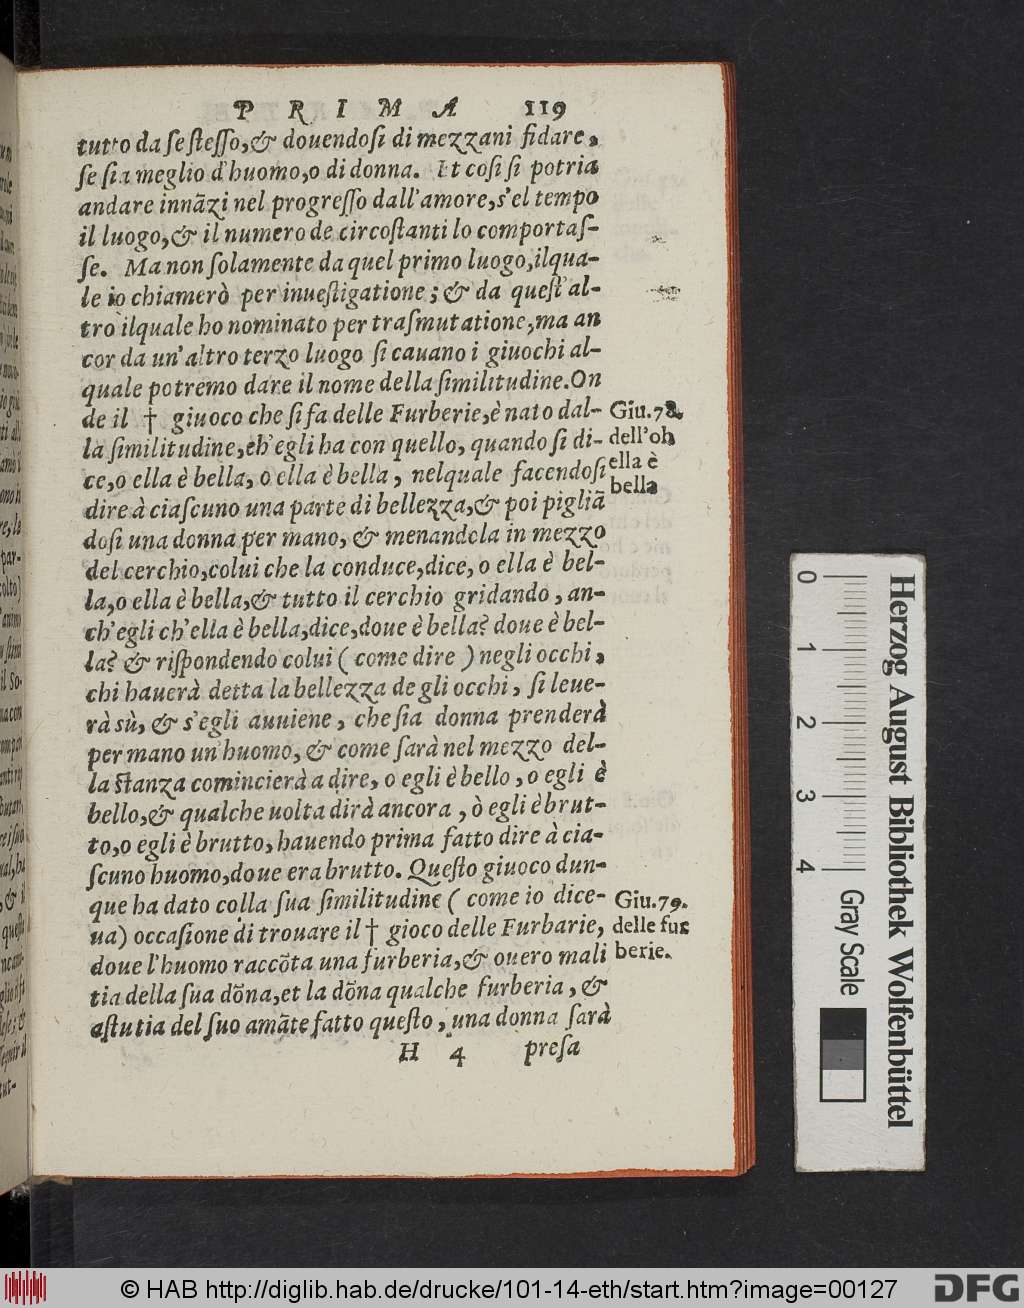 P R I M A 119
tutto da se stesso, & douendosi di mezzani fidare,
se sia meglio d'huomo, o di donna. Et cosi si potria
andare innãzi nel progresso dall'amore, s'el tempo
il luogo, & il numero de circostanti lo comportas-
se. Ma non solamente da quel primo luogo, ilqua-
le io chiamerò per inuestigatione; & da quest'al-
tro ilquale ho nominato per trasmutatione, ma an
cor da un'altro terzo luogo si cauano i giuochi al-
quale potremo dare il nome della similitudine. On
de il † giuoco che si fa delle Furberie, è nato dal-
la similitudine, ch'egli ha con quello, quando si di-
ce, o ella è bella, o ella è bella, nelquale facendosi
dire à ciascuno una parte di bellezza, & poi pigliã
dosi una donna per mano, & menandola in mezzo
del cerchio, colui che la conduce, dice, o ella è bel-
la, o ella è bella, & tutto il cerchio gridando, an-
ch'egli ch'ella è bella, dice, doue è bella? doue è bel-
la? & rispondendo colui (come dire) negli occhi,
chi hauerà detta la bellezza de gli occhi, si leue-
rà sù, & s'egli auuiene, che sia donna prenderà
per mano un'huomo, & come sarà nel mezzo del-
la stanza comincierà a dire, o egli è bello, o egli è
bello, & qualche uolta dirà ancora, ò egli è brut-
to, o egli è brutto, hauendo prima fatto dire à cia-
scuno huomo, doue era brutto. Questo giuoco dun-
que ha dato colla sua similitudine (come io dice-
ua) occasione di trouare il † gioco delle Furbarie,
doue l'huomo raccõta una furberia, & ouero mali
tia della sua dõna, et la dõna qualche furberia, &
astutia del suo amãte fatto questo, una donna sarà
H 4 presa
Giu. 78.
dell'oh
ella è
bella
Giu. 79.
delle fur
berie.
0 1 2 3 4
Gray Scale
Herzog August Bibliothek Wolfenbüttel
© HAB http://diglib.hab.de/drucke/101-14-eth/start.htm?image=00127
DFG